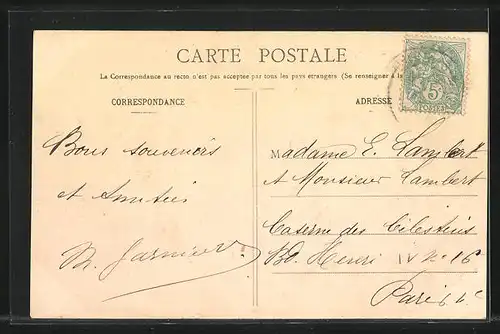 CARTE POSTALE
La Correspondance au recto n'est pas acceptée par tous les pays étrangers (Se renseigner à la
CORRESPONDANCE
ADRESSE
5
POSTES
Bons souvenirs
et Amitiés
Garnier
Madame E. Lambert
et Monsieur Lambert
Caserne des Célestins
Bd. Henri IV No 16
Paris